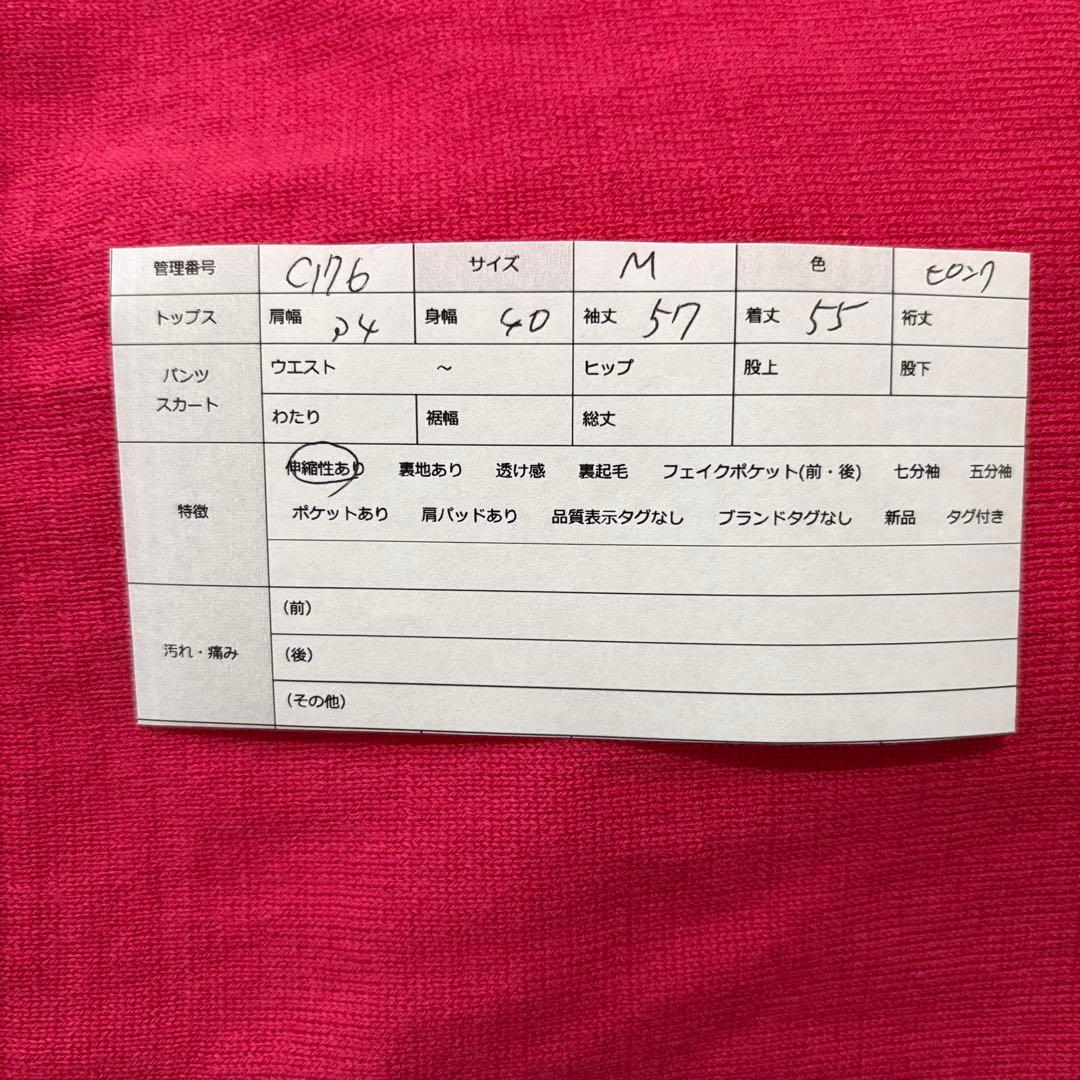 管理番号 C176 サイズ M 色 ピンク
トップス 肩幅 34 身幅 40 袖丈 57 着丈 55 裄丈
パンツ スカート ウエスト ～ ヒップ 股上 股下
わたり 裾幅 総丈
特徴 伸縮性あり 裏地あり 透け感 裏起毛 フェイクポケット(前・後) 七分袖 五分袖
ポケットあり 肩パッドあり 品質表示タグなし ブランドタグなし 新品 タグ付き
汚れ・痛み (前)
(後)
(その他)